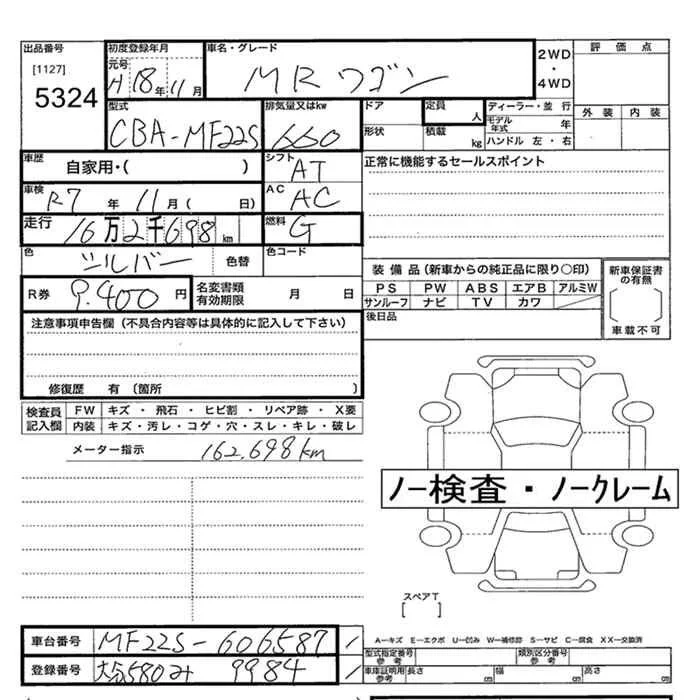 出品番号 [1127] 5324
初度登録年月 元号 H18年11月
車名・グレード MRワゴン
2WD・4WD
評価点
外装 内装
型式 CBA-MF22S
排気量又はkw 660
ドア
形状
定員 人
積載 kg
ディーラー・並 行
モデル年式 年
ハンドル 左・右
車歴 自家用・( )
シフト AT
正常に機能するセールスポイント
車検 R7年11月( 日)
AC AC
走行 16万2千698km
燃料 G
色 シルバー 色替
色コード
R券 9.400円
名変書類有効期限 月 日
装備品(新車からの純正品に限り○印)
PS PW ABS エアB アルミW
サンルーフ ナビ TV カワ
新車保証書の有無
車載不可
後日品
注意事項申告欄(不具合内容等は具体的に記入して下さい)
修復歴 有(箇所 )
検査員記入欄
FW キズ・飛石・ヒビ割・リペア跡・X要
内装 キズ・汚レ・コゲ・穴・スレ・キレ・破レ
メーター指示 162,698km
ノー検査・ノークレーム
スペアT
[ ]
車台番号 MF22S-606587
登録番号 580み 9984
A–キズ E–エクボ U–凹み W–補修跡 S–サビ C–腐食 XX–交換済
型式指定番号 参考
類別区分番号 参考
車庫証明用 参考 長さ cm 幅 cm 高さ cm